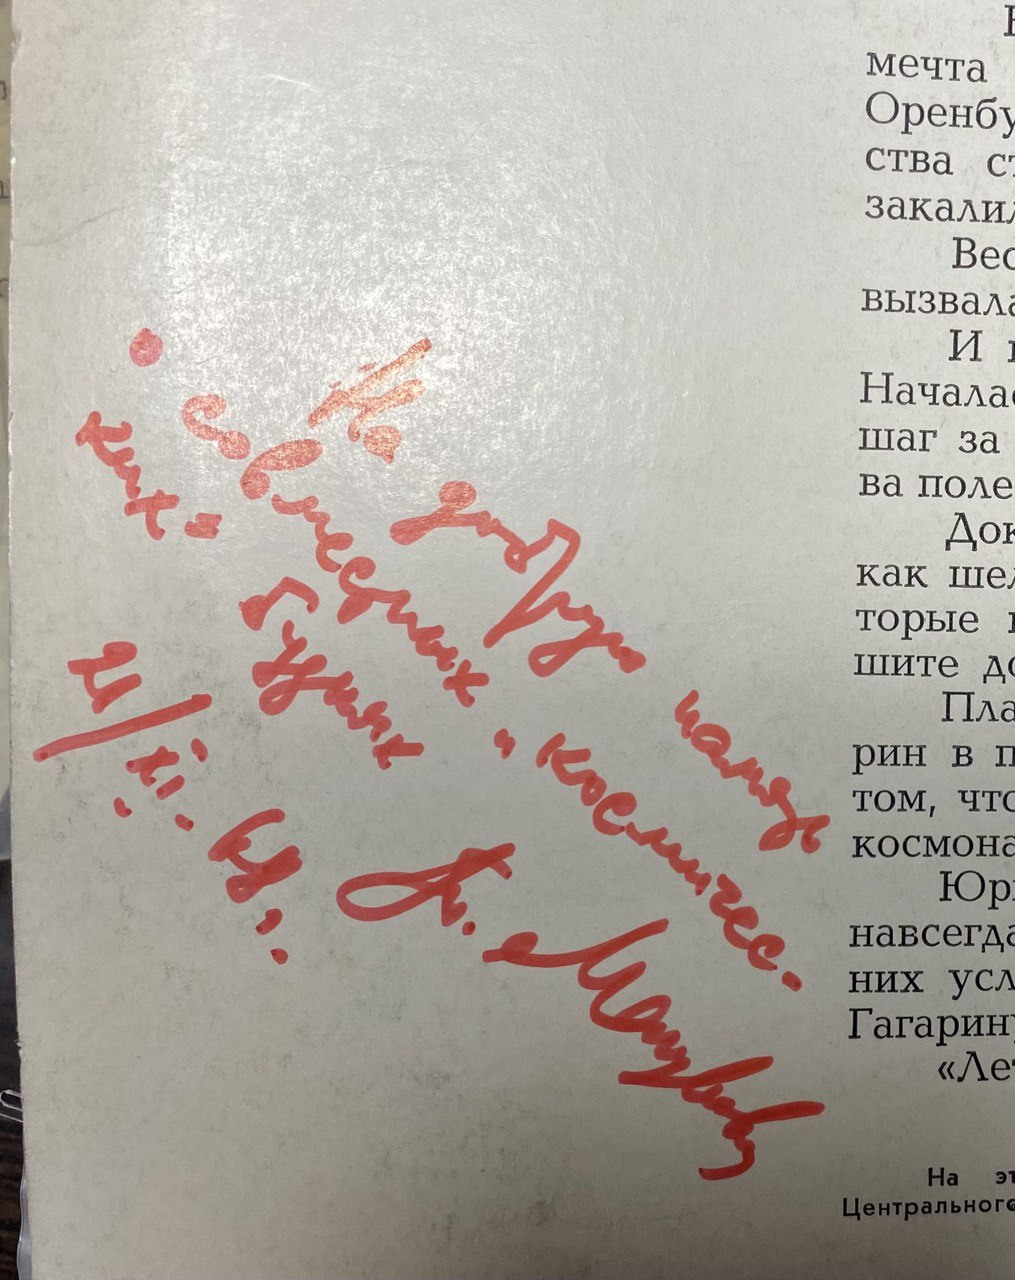 На добрую память
о совместных „космичес-
ких“ буднях
21/XI.
мечта
Оренбу
ства ст
закалил
Вес
вызвала
И
Началас
шаг за
ва поле
Док
как шел
торые
шите до
Пла
рин в п
том, что
космона
Юри
навсегда
них усл
Гагарину
«Лет
На эт
Центрального